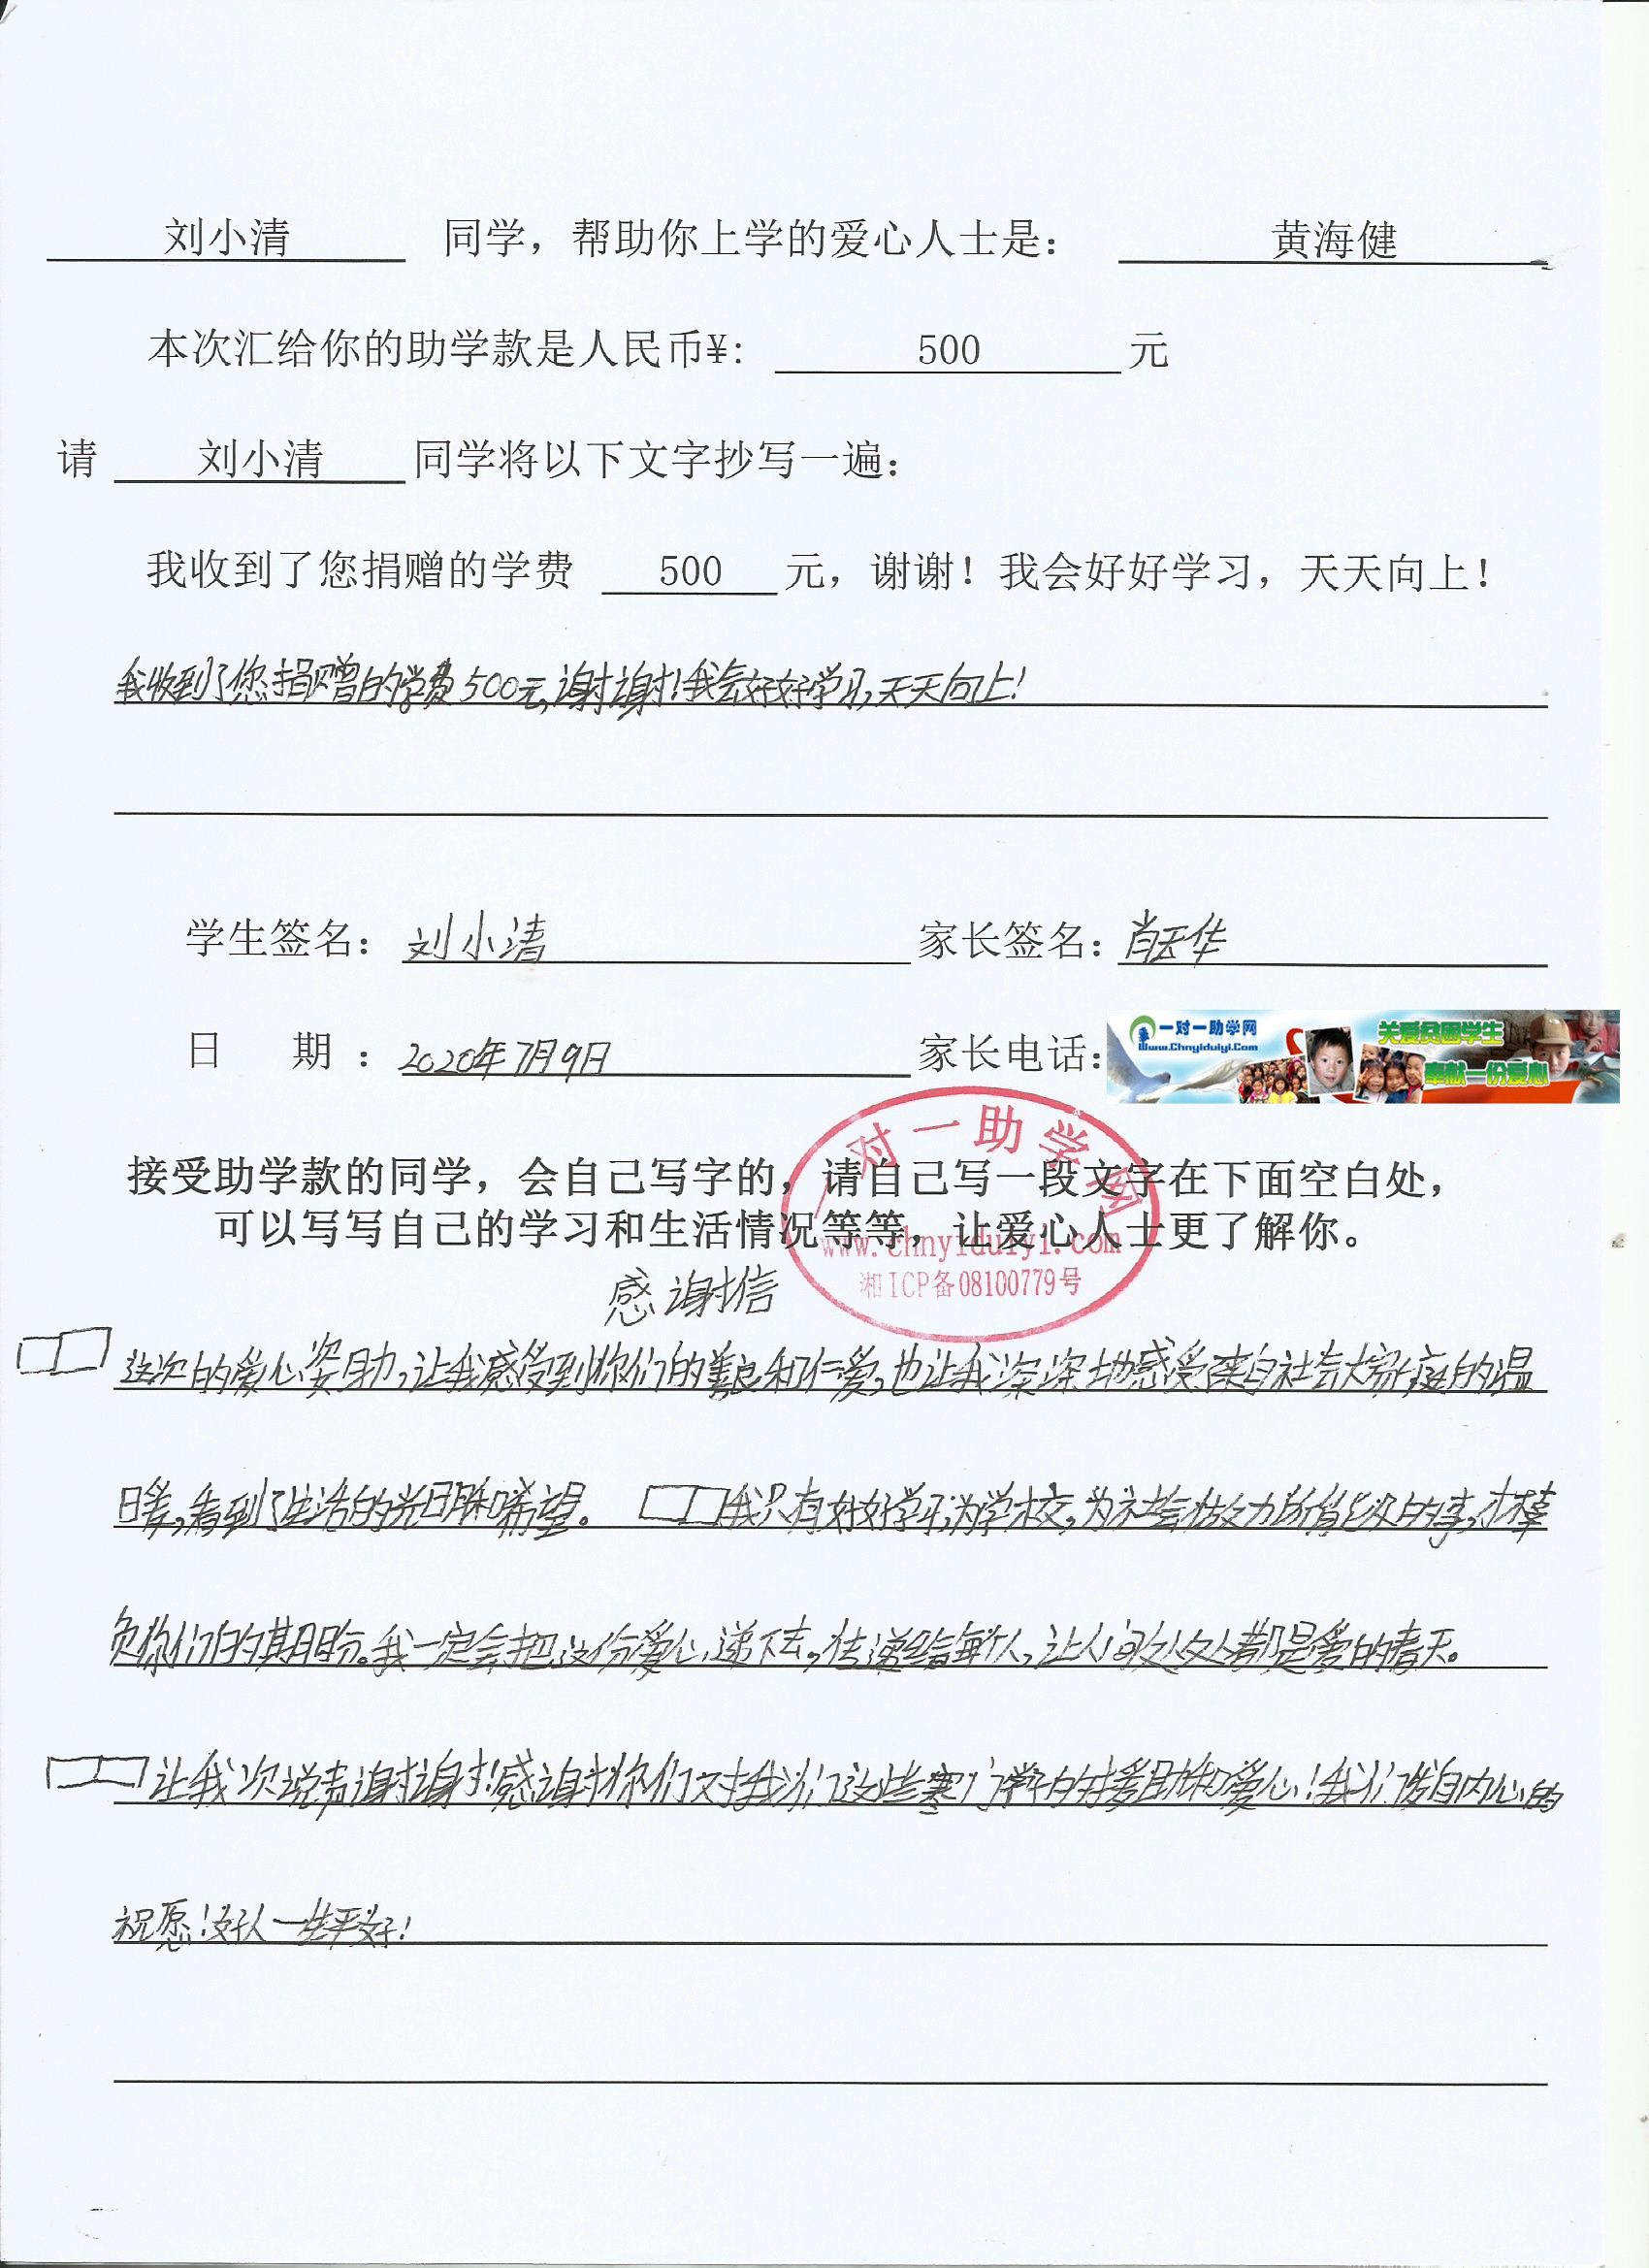 刘小清 同学，帮助你上学的爱心人士是： 黄海健
本次汇给你的助学款是人民币¥: 500 元
请 刘小清 同学将以下文字抄写一遍：
我收到了您捐赠的学费 500 元，谢谢！我会好好学习，天天向上！
我收到了您捐赠的学费500元,谢谢!我会好好学习,天天向上!
学生签名： 刘小清 家长签名： 肖玉华
日 期 ： 2020年7月9日 家长电话：
一对一助学网 关爱贫困学生
Www.Chnyiduiyi.Com 奉献一份爱心
一对一助学网
www.chnyiduiyi.com
湘ICP备08100779号
接受助学款的同学，会自己写字的，请自己写一段文字在下面空白处，
可以写写自己的学习和生活情况等等，让爱心人士更了解你。
感谢信
这次的爱心资助,让我感受到你们的善良和仁爱,也让我深深地感受来自社会大家庭的温
暖,看到了生活的光明和希望。 我只有好好学习,为学校,为社会做力所能及的事,才不辜
负你们的期盼。我一定会把这份爱心递下去,传递给每个人,让人间处处都是爱的春天。
让我次说声谢谢!感谢你们对我们这些寒门学子的援助和爱心!我们发自内心的
祝愿!好人一生平好!